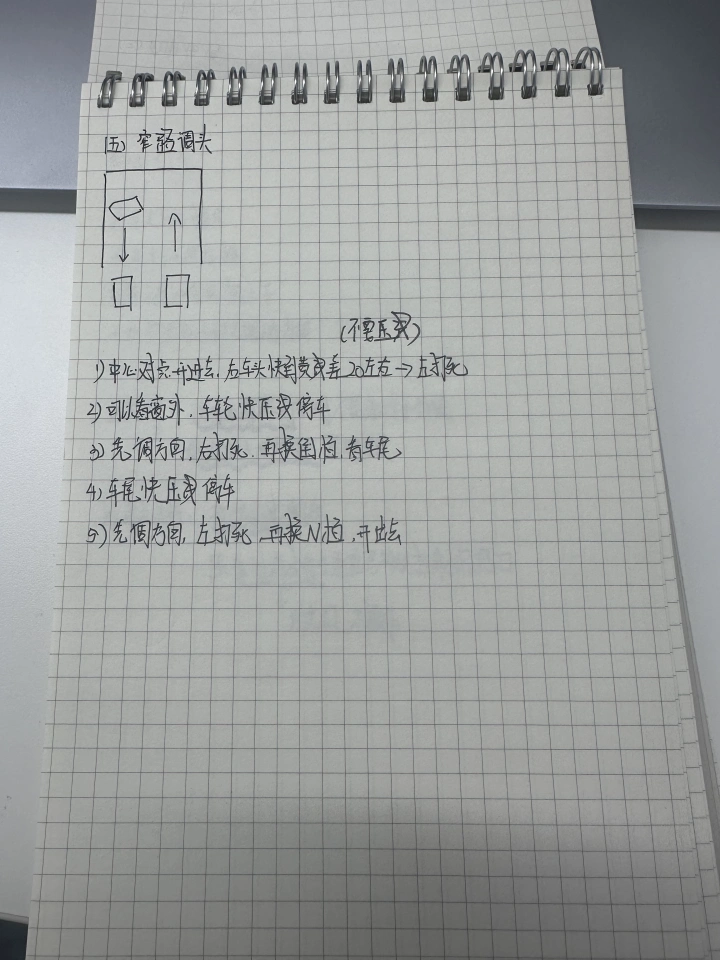 (五) 窄路调头
(不要压线)
1) 中心对点开进去, 右车头快到黄线差20左右→左打死
2) 可以看窗外, 车轮快压线停车
3) 先调方向, 右打死, 再换倒挡, 看车尾
4) 车尾快压线停车
5) 先调方向, 左打死, 再换N挡, 开出去